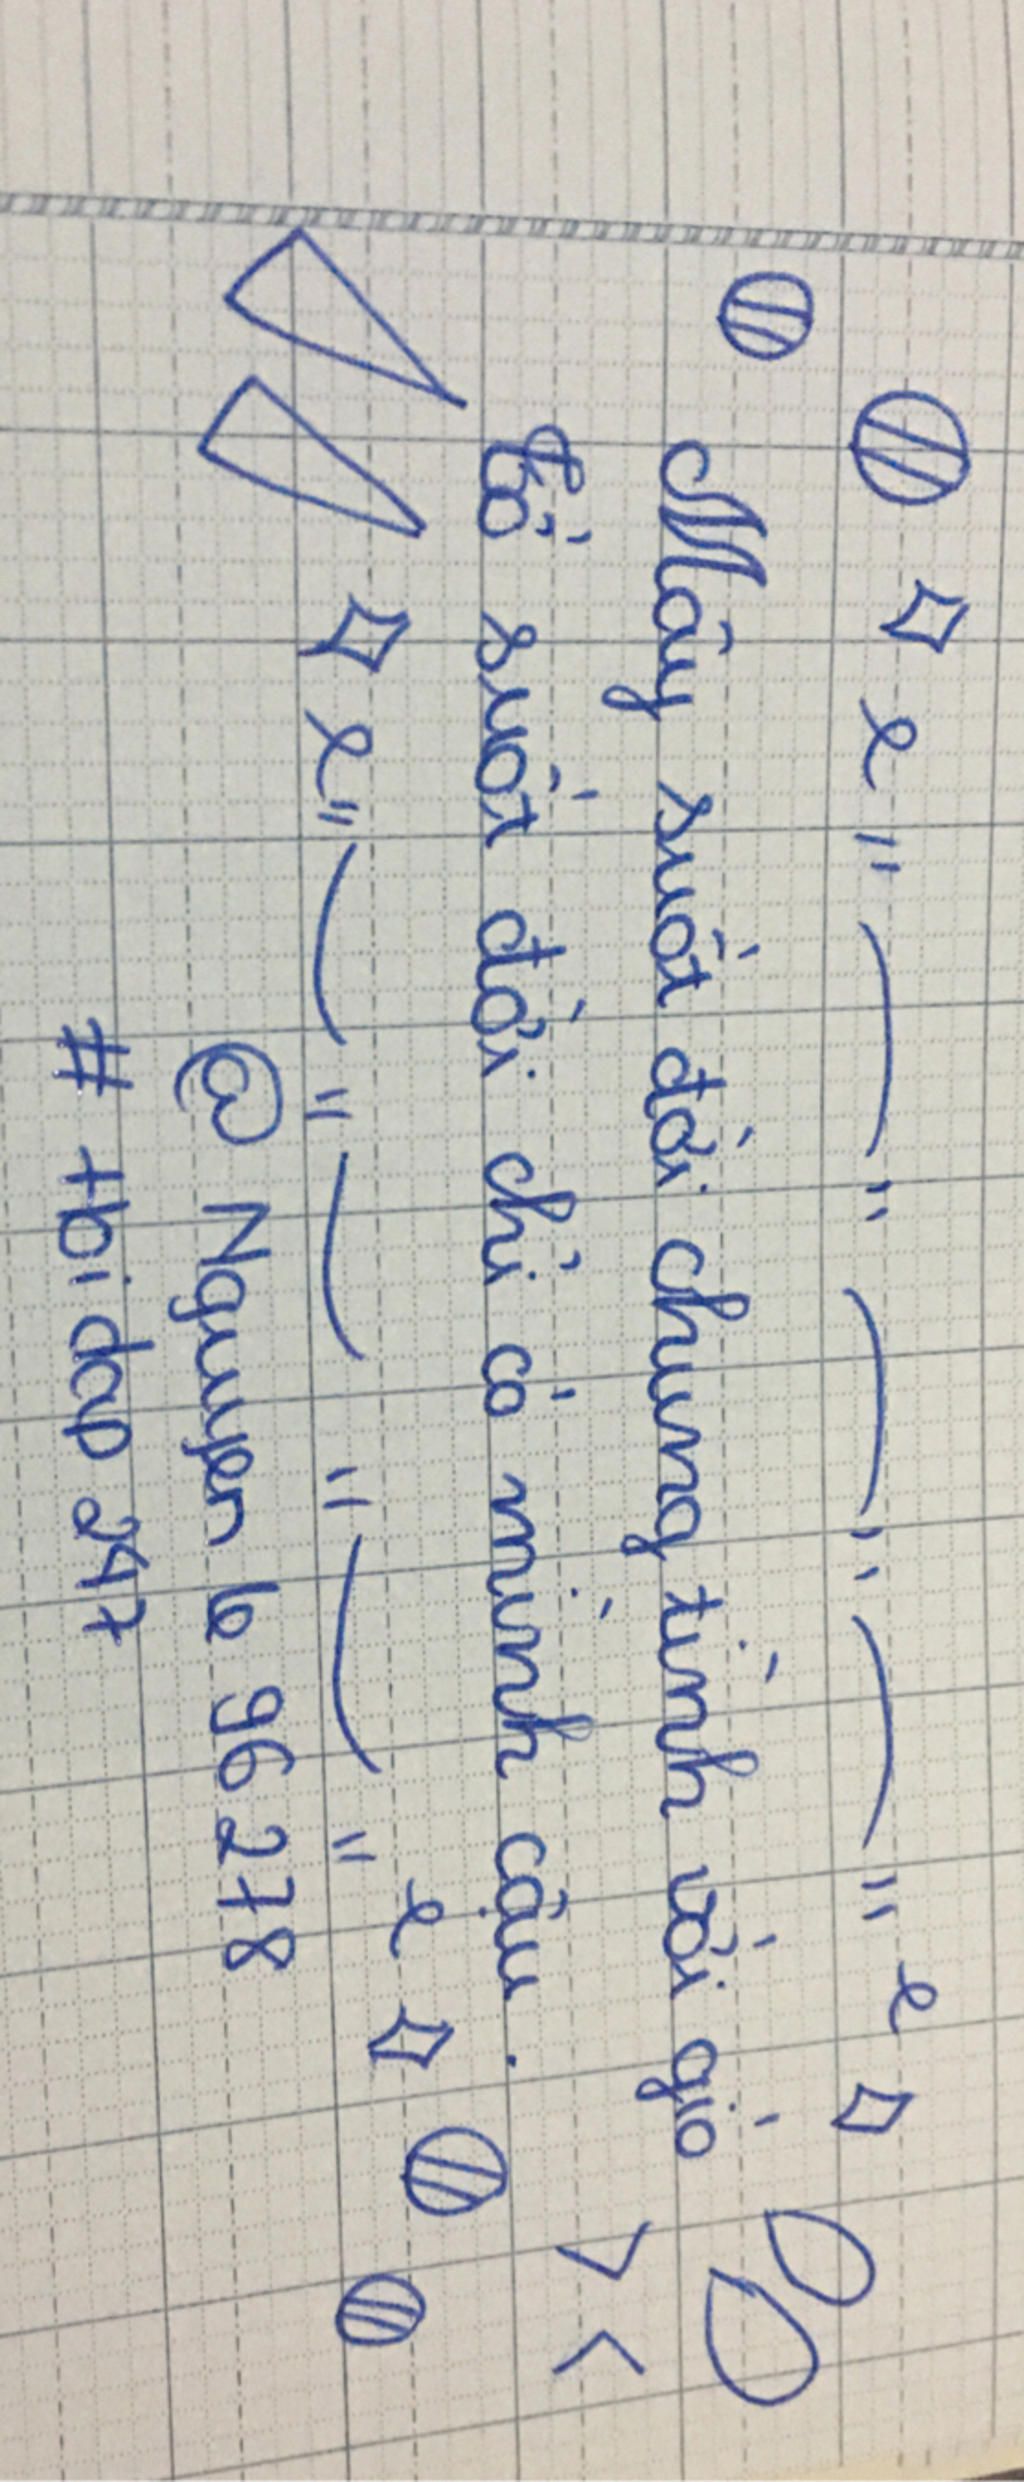 Mây suốt đời chung tình với gió
Tớ suốt đời chỉ có mình cậu.
@ Nguyen le 96278
# tbi dap 247